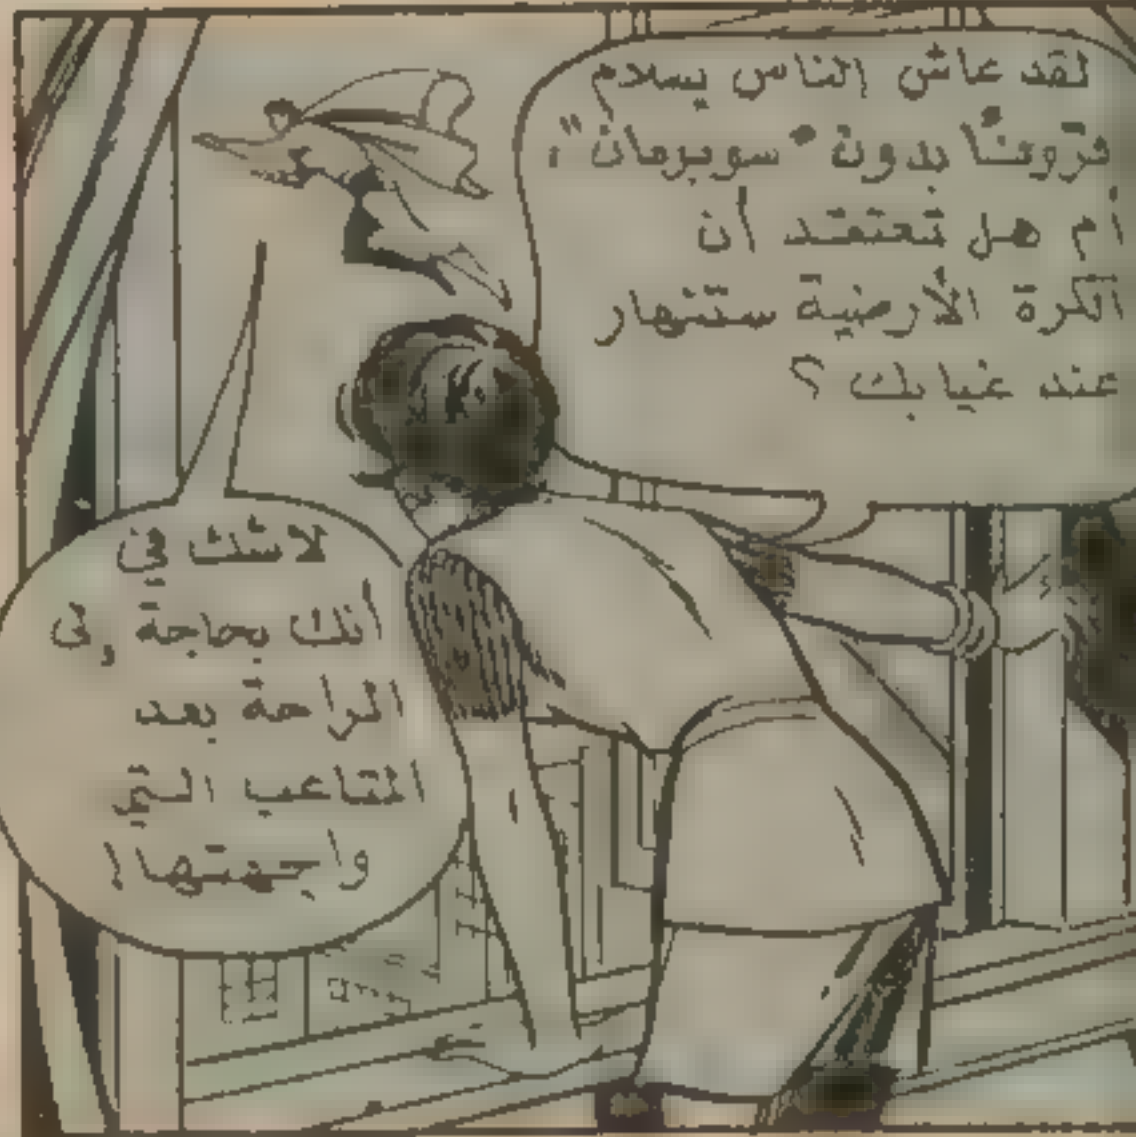 لقد عاش الناس بسلام
قرونًا بدون "سوبرمان"،
أم هل تعتقد أن
الكرة الأرضية ستنهار
عند غيابك ؟
لا شك في
أنك بحاجة إلى
الراحة بعد
المتاعب التي
واجهتها!